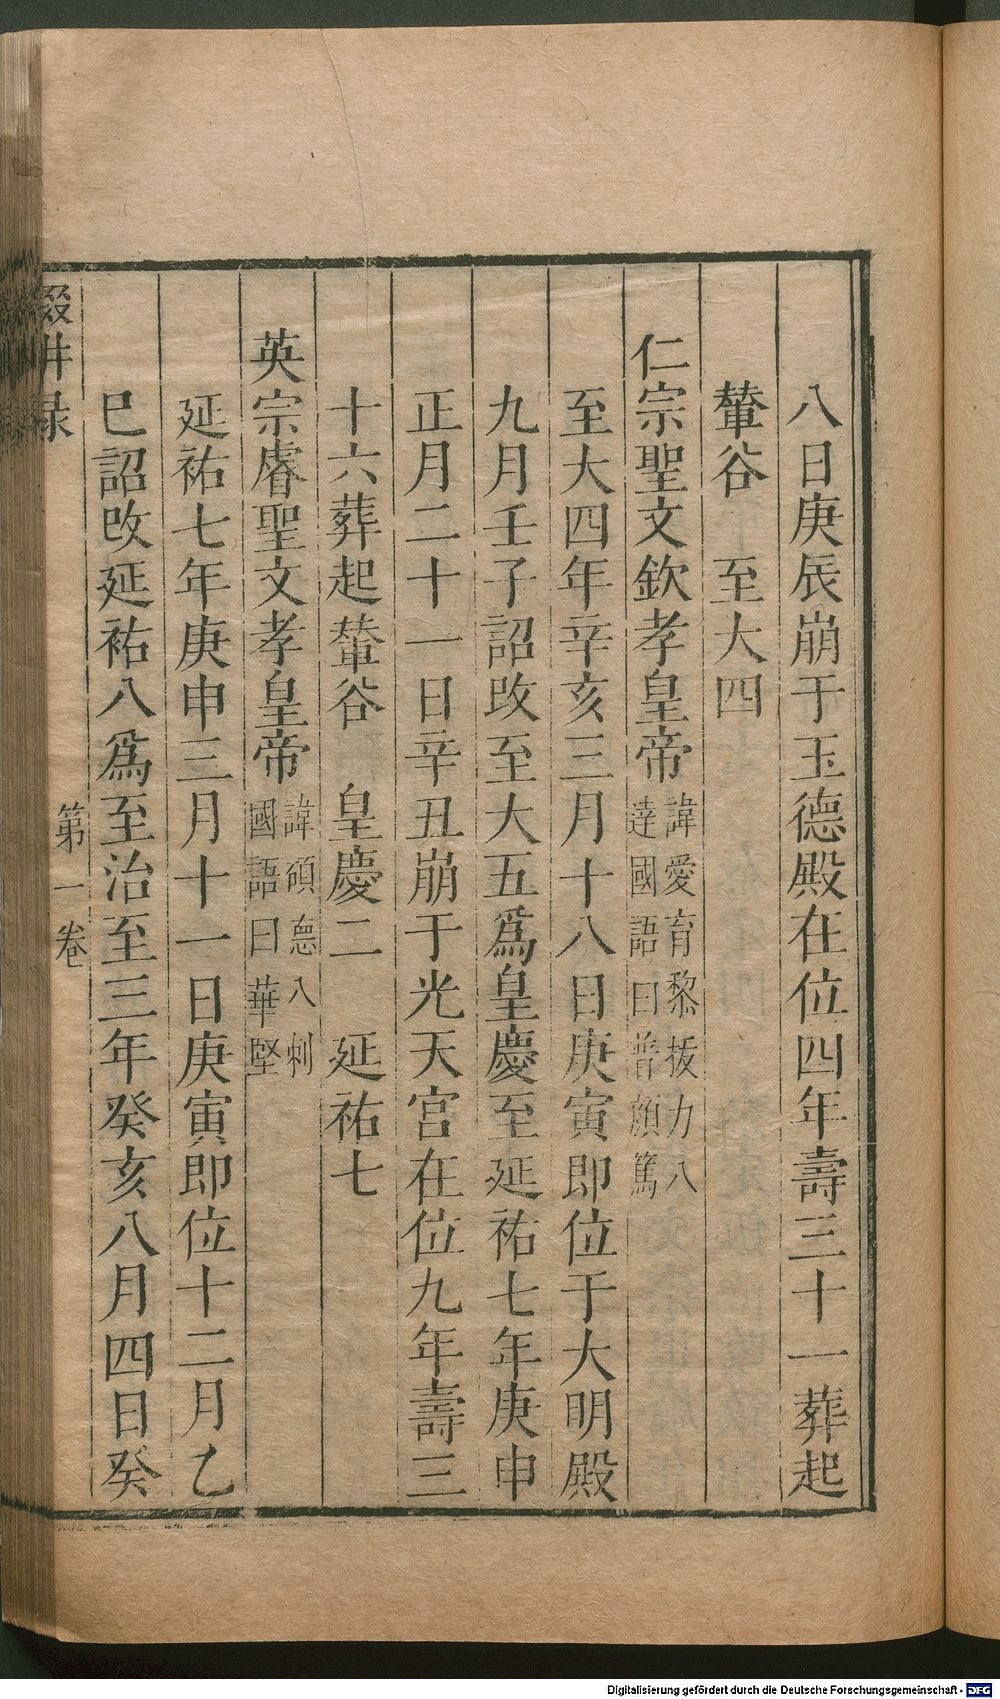 八日庚辰崩于玉德殿在位四年壽三十一葬起
輦谷　至大四
仁宗聖文欽孝皇帝諱愛育黎拔力八達國語曰普顔篤
至大四年辛亥三月十八日庚寅即位于大明殿
九月壬子詔改至大五爲皇慶至延祐七年庚申
正月二十一日辛丑崩于光天宮在位九年壽三
十六葬起輦谷　皇慶二　延祐七
英宗睿聖文孝皇帝諱碩惪八剌國語曰華堅
延祐七年庚申三月十一日庚寅即位十二月乙
巳詔改延祐八爲至治至三年癸亥八月四日癸
輟畊录　第一卷
Digitalisierung gefördert durch die Deutsche Forschungsgemeinschaft - DFG